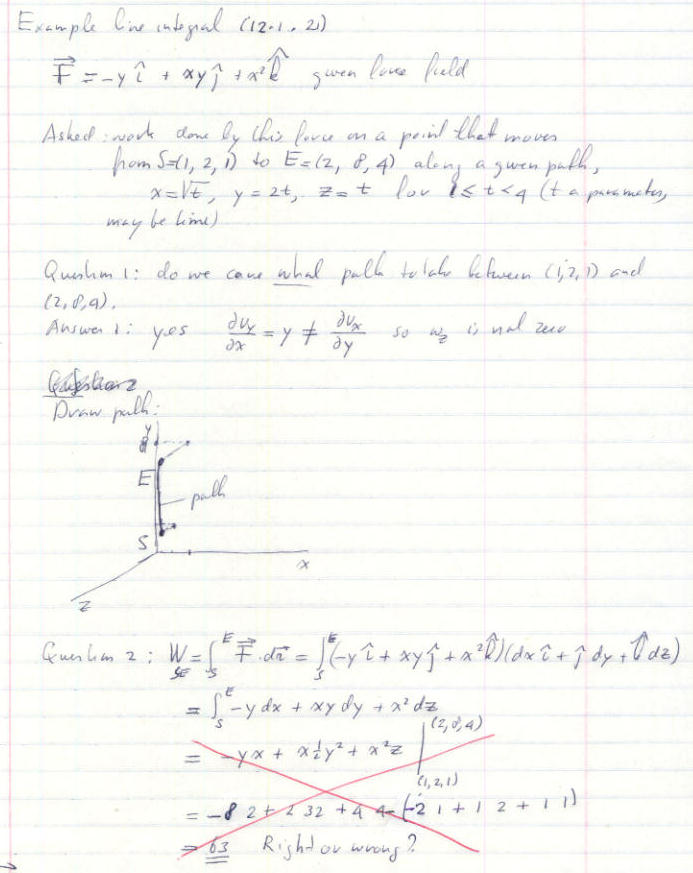 Example line integral (12.1.21)
F⃗ = -y î + xy ĵ + x² k̂ given force field
Asked: work done by this force on a point that moves
from S=(1, 2, 1) to E=(2, 8, 4) along a given path,
x=√t, y = 2t, z = t for 1 ≤ t < 4 (t a parameter,
may be time)
Question 1: do we care what path to take between (1,2,1) and
(2,8,4).
Answer 1: yes ∂v_y/∂x = y ≠ ∂v_x/∂y so ω_z is not zero
Question 2
Draw path:
y
8
E
path
S
x
z
Question 2: W_SE = ∫_S^E F⃗·dr⃗ = ∫_S^E (-y î + xy ĵ + x² k̂)(dx î + ĵ dy + k̂ dz)
= ∫_S^E -y dx + xy dy + x² dz
= -yx + x ½ y² + x² z |_(1,2,1)^(2,8,4)
= -8 2 + 2 32 + 4 4 - (-2 1 + 1 2 + 1 1)
= 63 Right or wrong?